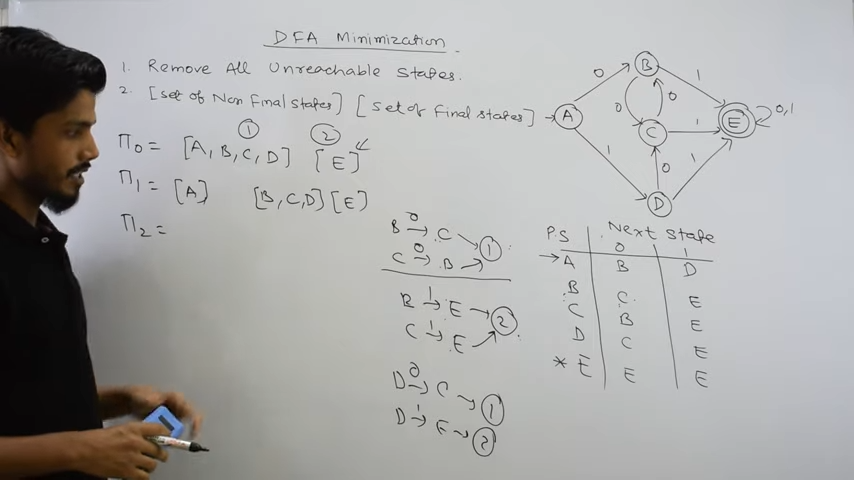 DFA Minimization
1. Remove All Unreachable States.
2. [set of Non Final states] [set of Final states]
① ②
Π0 = [A, B, C, D] [E]
Π1 = [A] [B, C, D] [E]
Π2 =
B 0→ C → ①
C 0→ B →
B 1→ E → ②
C 1→ E →
D 0→ C → ①
D 1→ E → ②
A B C D E
0 1 0 0 1 0 1 0,1
P.S Next State
0 1
→ A B D
B C E
C B E
D C E
* E E E